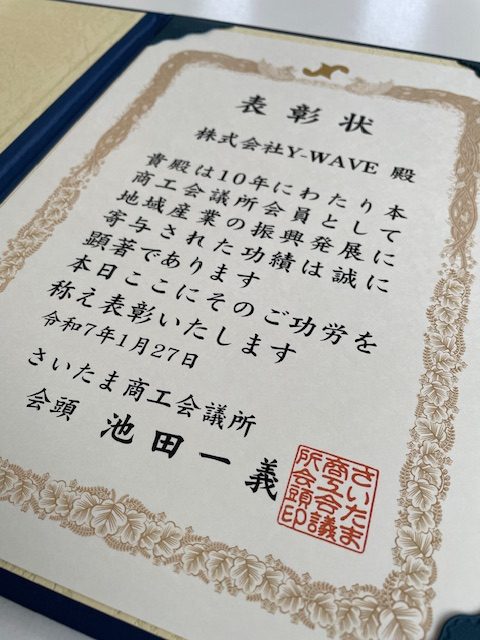 表彰状
株式会社Y-WAVE 殿
貴殿は10年にわたり本
商工会議所会員として
地域産業の振興発展に
寄与された功績は誠に
顕著であります
本日ここにそのご功労を
称え表彰いたします
令和7年1月27日
さいたま商工会議所
会頭 池田一義
さいたま
商工会議
所会頭印